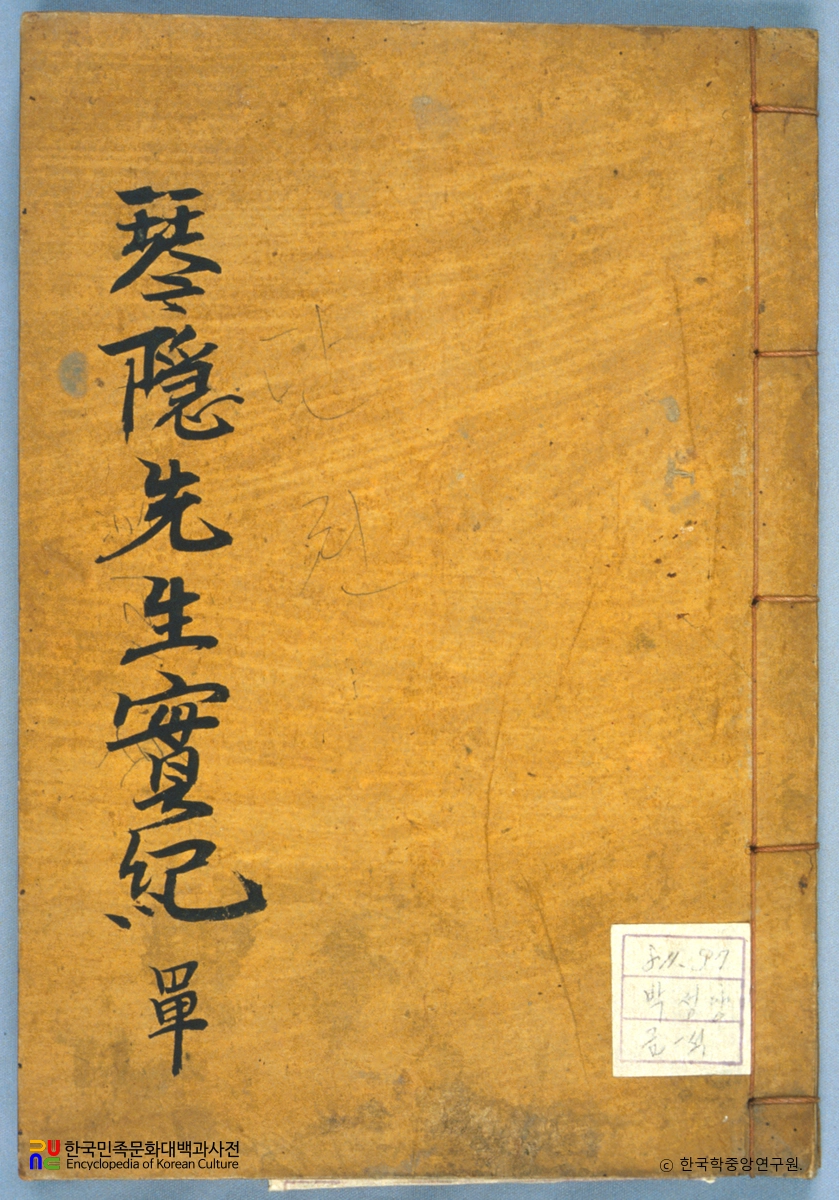 琴隱先生實紀 單
단
권
박성양
한국민족문화대백과사전
Encyclopedia of Korean Culture
© 한국학중앙연구원.